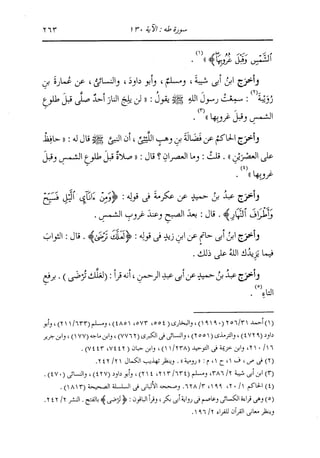 سورة طه : الآية ١٣٠ ٢٦٣
الشَّمْسِ وَقَبْلَ غُرُوبِهَا﴾» (١).
وأخرج ابنُ أبى شيبةَ ، ومسلمٌ ، وأبو داودَ ، والنسائىُّ ، عن عُمارةَ بنِ
رُوَيْبَةَ (٢) : سمِعْتُ رسولَ اللهِ ﷺ يقولُ : « لن يَلِجَ النارَ أحدٌ صلَّى قبلَ طلوعِ
الشمسِ وقبلَ غروبِها » (٣).
وأخرج الحاكمُ عن فَضالةَ بنِ وهبٍ الليثىِّ ، أن النبىَّ ﷺ قال له : « حافِظْ
على العصرَيْنِ » . قلتُ : وما العصرانِ ؟ قال : « صلاةٌ قبلَ طلوعِ الشمسِ وقبلَ
غروبِها » (٤).
وأخرج عبدُ بنُ حميدٍ عن عكرمةَ فى قولِه : ﴿وَمِنْ ءَانَآىِٕ الَّيْلِ فَسَبِّحْ
وَأَطْرَافَ النَّهَارِ﴾ . قال : بعدَ الصبحِ وعندَ غروبِ الشمسِ .
وأخرج ابنُ أبى حاتمٍ عن ابنِ زيدٍ فى قولِه : ﴿لَعَلَّكَ تَرْضَىٰ﴾ . قال : الثوابَ
فيما يَزِيدُك اللهُ على ذلك .
وأخرج عبدُ بنُ حميدٍ عن أبى عبدِ الرحمنِ ، أنه قرَأ : (لعلَّك تُرْضَى) . برفعِ
التاءِ (٥).
(١) أحمد ٣١/ ٢٥٦ (١٩١٩٠) ، والبخارى (٥٥٤، ٥٧٣، ٤٨٥١) ، ومسلم (٦٣٣/ ٢١١) ، وأبو
داود (٤٧٢٩) ، والترمذى (٢٥٥١) ، والنسائى فى الكبرى (٧٧٦٢) ، وابن ماجه (١٧٧) ، وابن جرير
١٦/ ٢١٠، وابن خزيمة فى التوحيد (١١/ ٢٣٨) ، وابن حبان (٧٤٤٢، ٧٤٤٣) .
(٢) فى ص ، ف ١، ح ١، م : « رومية » . وينظر تهذيب الكمال ٢١/ ٢٤٢.
(٣) ابن أبى شيبة ٢/ ٣٨٦، ومسلم (٦٣٤/ ٢١٣، ٢١٤) ، وأبو داود (٤٢٧) ، والنسائى (٤٧٠) .
(٤) الحاكم ١/ ٢٠، ١٩٩، ٣/ ٦٢٨. وصححه الألبانى فى السلسلة الصحيحة (١٨١٣) .
(٥) وهى قراءة الكسائى وعاصم فى رواية أبى بكر ، وقرأ الباقون : ﴿تَرْضَىٰ﴾ بالفتح . النشر ٢/ ٢٤٢.
وينظر معانى القرآن للفراء ٢/ ١٩٦.